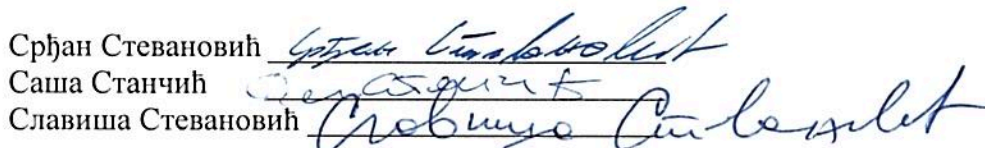 Срђан Стевановић Срђан Стевановић
Саша Станчић Саша Станчић
Славиша Стевановић Славиша Стевановић